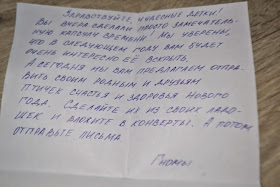 Здравствуйте, чудесные детки!
Вы вчера сделали просто замечатель-
ную капсулу времени! Мы уверены,
что в следующем году вам будет
очень интересно её вскрыть.
А сегодня мы вам предлагаем отпра-
вить своим родным и друзьям
птичек счастья и здоровья Нового
года. Сделайте их из своих ладо-
шек и вложите в конверты. А потом
отправьте письма
Гномы